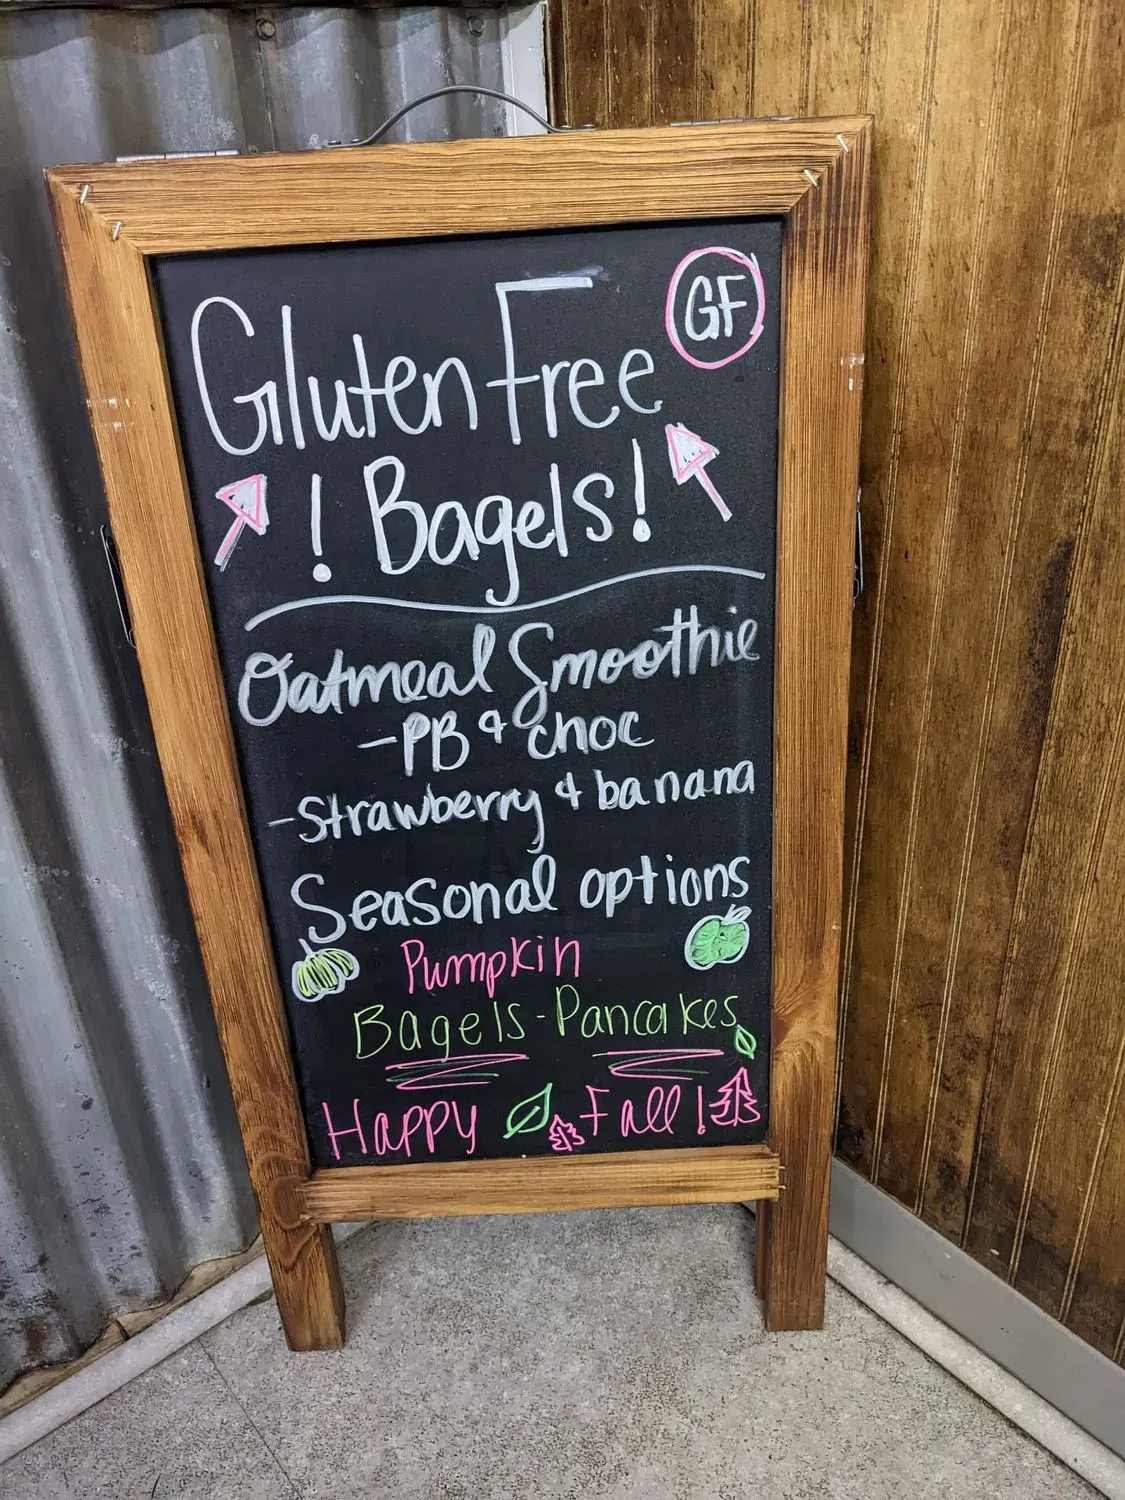 GF
Gluten Free
! Bagels!
Oatmeal Smoothie
- PB & choc
- Strawberry & banana
Seasonal options
Pumpkin
Bagels - Pancakes
Happy Fall!